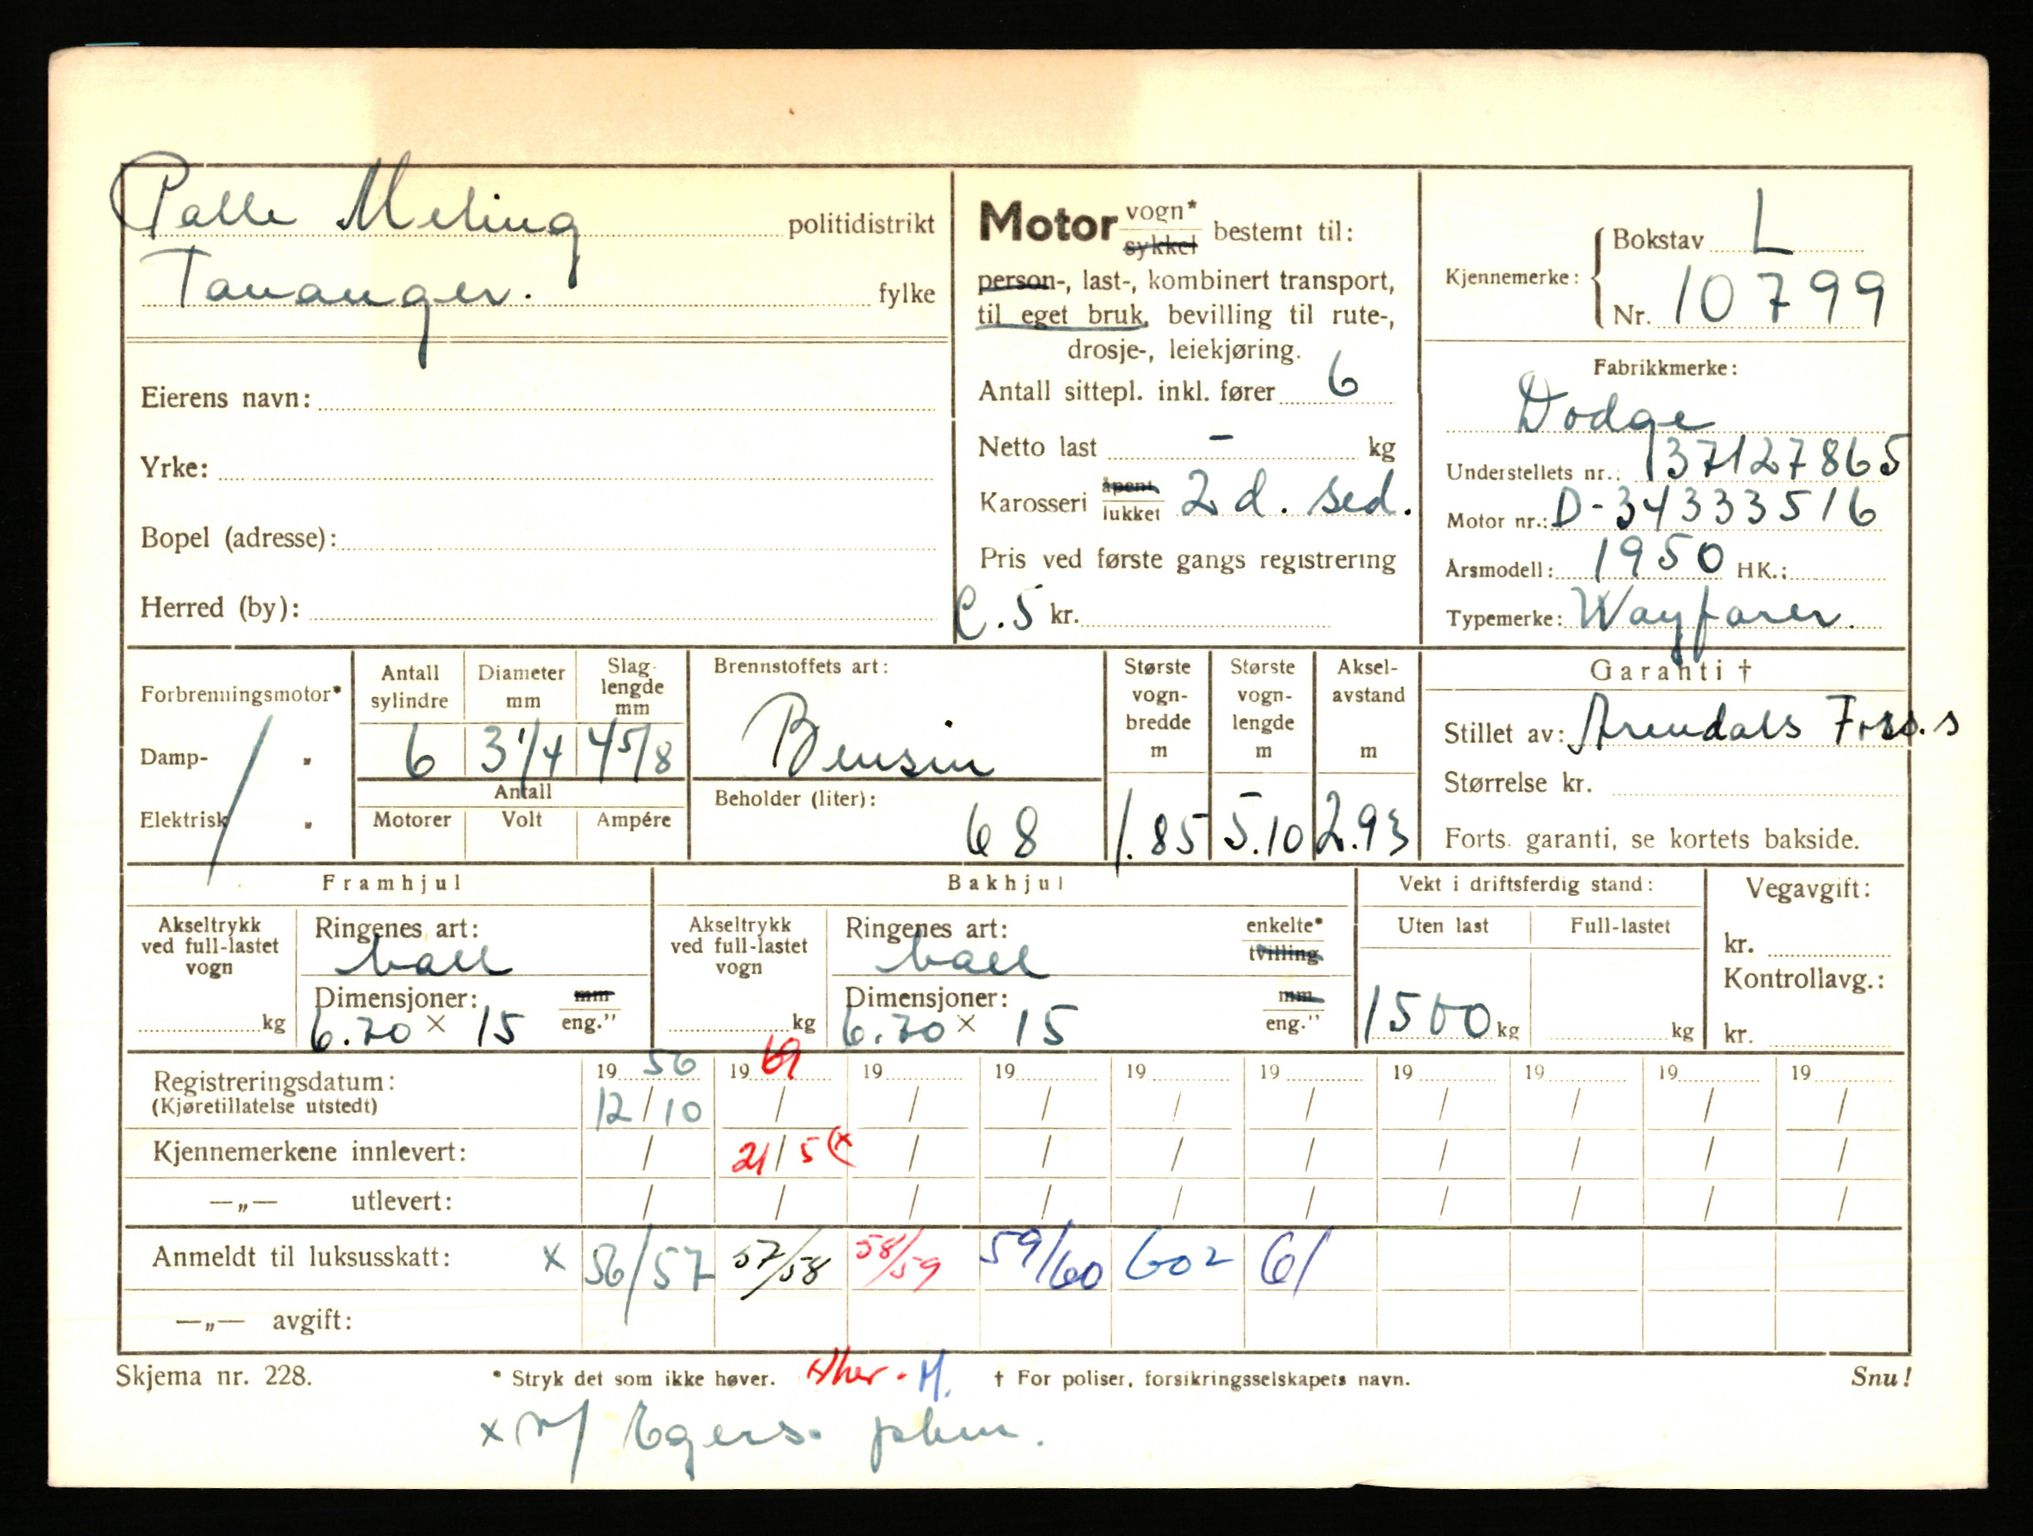 Palle Meling politidistrikt
Tananger. fylke
Eierens navn:
Yrke:
Bopel (adresse):
Herred (by):
Motor vogn* sykkel bestemt til:
person-, last-, kombinert transport,
til eget bruk, bevilling til rute-,
drosje-, leiekjøring.
Antall sittepl. inkl. fører 6
Netto last - kg
Karosseri åpent lukket 2 d. sed.
Pris ved første gangs registrering
C.5 kr.
Kjennemerke: Bokstav L
Nr. 10799
Fabrikkmerke:
Dodge
Understellets nr.: 37127865
Motor nr.: D-34333516
Årsmodell: 1950 HK.:
Typemerke: Wayfarer.
Forbrenningsmotor*
Damp- "
Elektrisk "
Antall sylindre 6
Diameter mm 3 1/4
Slaglengde mm 4 5/8
Antall
Motorer Volt Ampére
Brennstoffets art:
Bensin
Beholder (liter):
68
Største vogn-bredde m 1.85
Største vogn-lengde m 5.10
Aksel-avstand m 2.93
Garanti †
Stillet av: Arendals Fors.s
Størrelse kr.
Forts. garanti, se kortets bakside.
Framhjul
Akseltrykk ved full-lastet vogn kg
Ringenes art:
ball
Dimensjoner: mm eng."
6.70 × 15
Bakhjul
Akseltrykk ved full-lastet vogn kg
Ringenes art: enkelte* tvilling
ball
Dimensjoner: mm eng."
6.70 × 15
Vekt i driftsferdig stand:
Uten last Full-lastet
1500 kg kg
Vegavgift:
kr.
Kontrollavg.:
kr.
Registreringsdatum: 19 56 19 61 19 19 19 19 19 19 19 19
(Kjøretillatelse utstedt) 12/10 / / / / / / / / /
Kjennemerkene innlevert: / 21/5 (x / / / / / / / /
—„— utlevert: / / / / / / / / / /
Anmeldt til luksusskatt: x 56/57 57/58 58/59 59/60 602 61
—„— avgift:
Skjema nr. 228. * Stryk det som ikke høver. M. † For poliser, forsikringsselskapets navn. Snu!
x Egers.